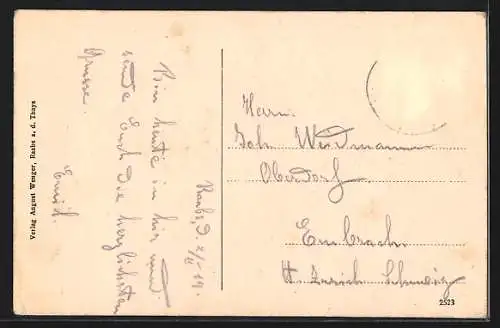 Raabs, d. 2/II-19.
Bin heute in hir und
sende Euch die herzlichsten
Grüsse.
Emil.
Herrn
Joh. Weidmann
Oberdorf
Embrach
Kt. Zürich Schweiz
Verlag August Wenger, Raabs a. d. Thaya
2523